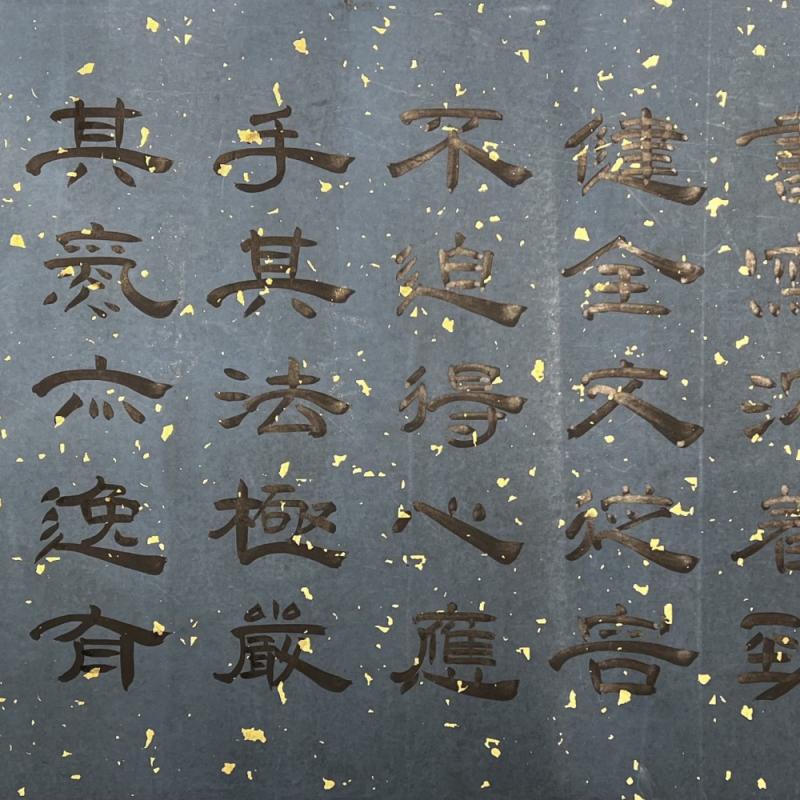 沉着
健全文從容
不迫得心應
手其法極嚴
其氣亦逸有